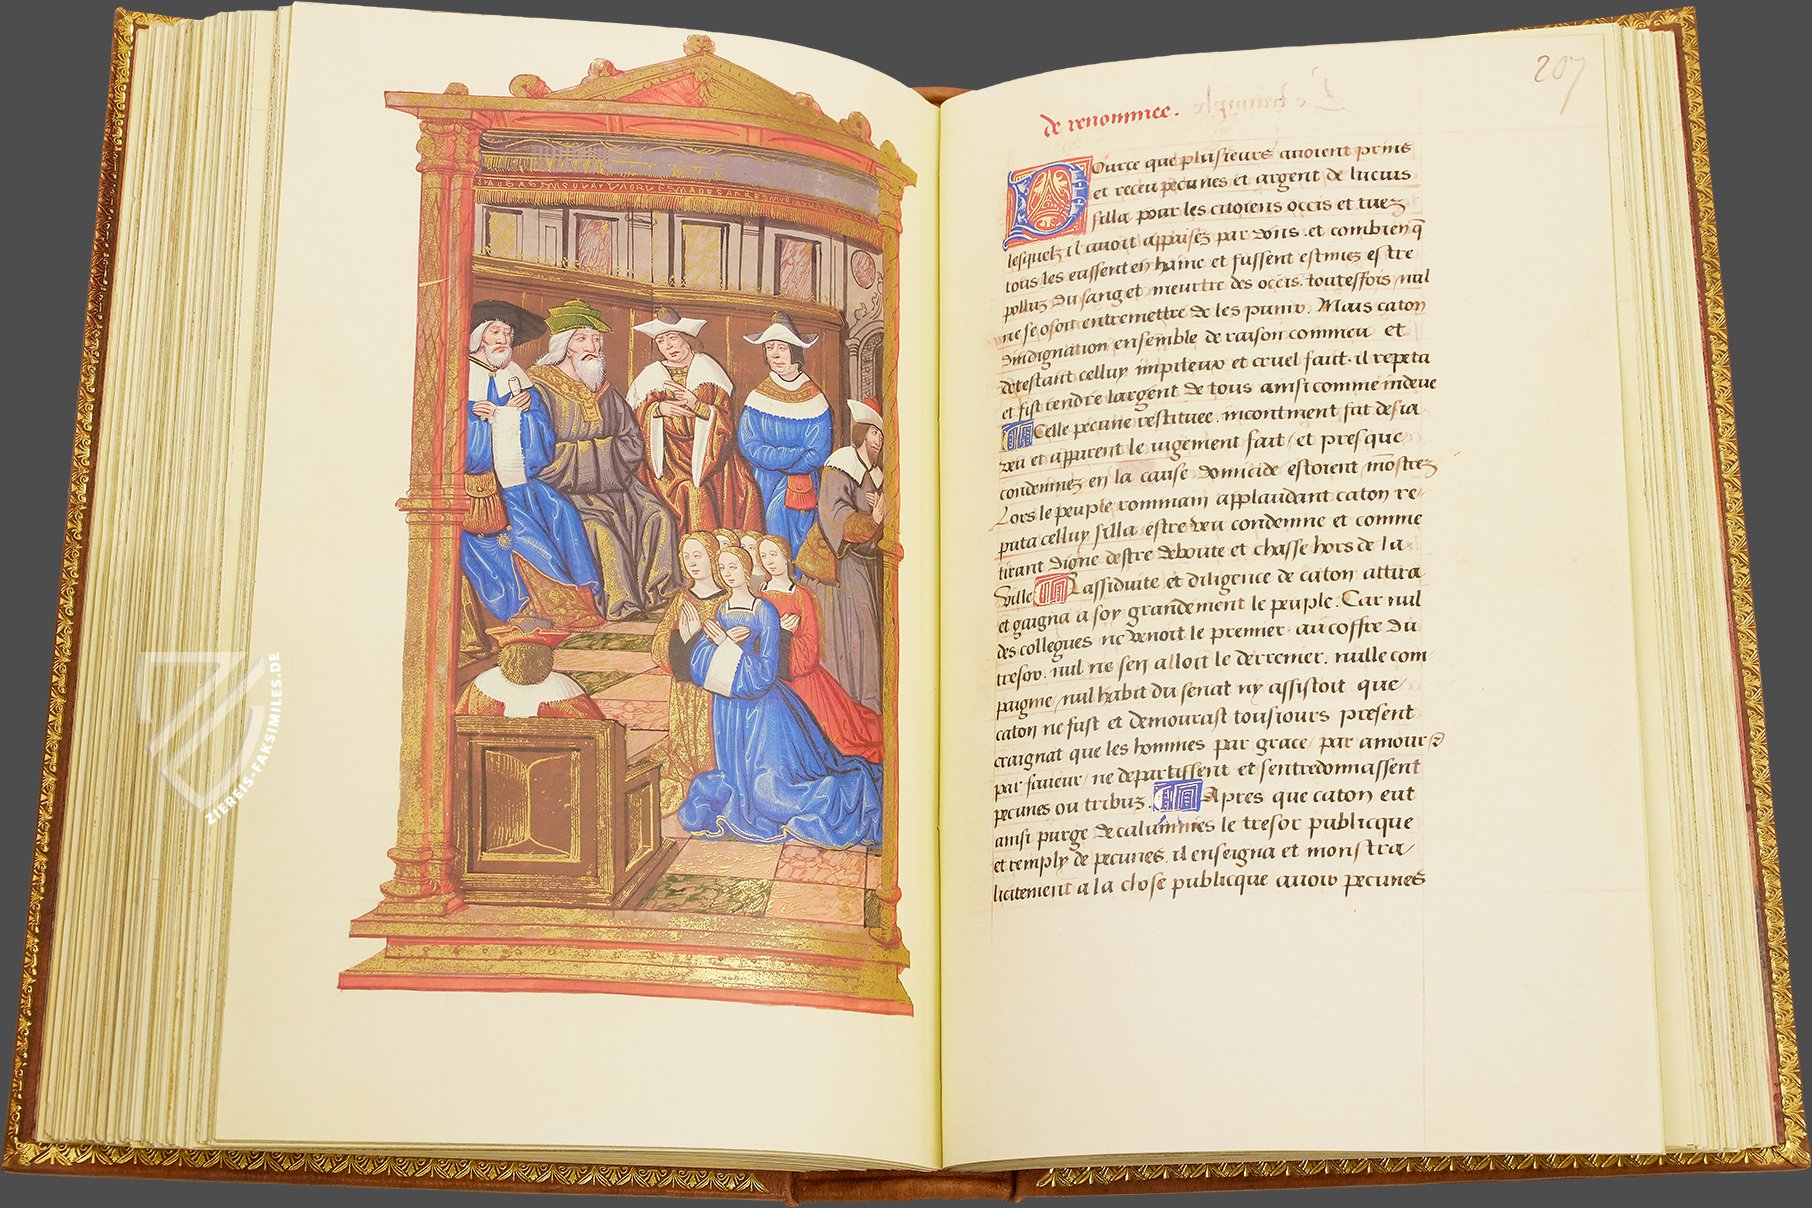 ZIEREIS-FAKSIMILES.DE
207
de renommee.
Pource que plusieurs avoient prins
et receu pecunes et argent de lucius
silla pour les citoiens occis et tuez
lesquelz il avoit appaisez par dons. et combien q̄
tous les eussent en haine et fussent estimez estre
polluz du sang et meurtre des occis. touteffois nul
ne se osoit entremettre de les punir. Mais caton
dindignation ensemble de raison commeu et
detestant celluy impiteux et cruel fait. il repeta
et fist rendre largent de tous ainsi comme indeue
Icelle pecune restituee. incontinent fut desia
veu et apparent le iugement fait / et presque
condemnez en la cause domicide estoient mōstrez
Lors le peuple rommain applaudant caton re-
puta celluy silla estre veu condemne et comme
tirant digne destre deboute et chasse hors de la
ville La assiduite et diligence de caton attira
et gaigna a soy grandement le peuple. Car nul
des collegues ne venoit le premier au coffre du
tresor. nul ne sen alloit le derrenier. nulle com-
paigne / nul habit du senat ny assistoit que
caton ne fust et demourast tousiours present
craignat que les hommes par grace / par amour &
par faveur / ne departissent et sentredonnassent
pecunes ou tribuz. Apres que caton eut
ainsi purge de calumnies le tresor publicque
et remply de pecunes. il enseigna et monstra
licitement a la chose publicque avoir pecunes